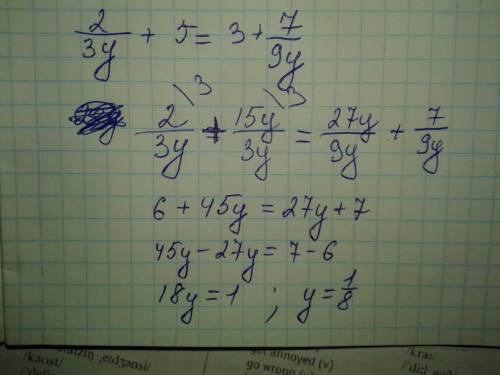 2/3y + 5 = 3 + 7/9y
2/3y \3 + 15y/3y \3 = 27y/9y + 7/9y
6 + 45y = 27y + 7
45y - 27y = 7 - 6
18y = 1 ; y = 1/8
get annoyed (v)
go wrong (v)